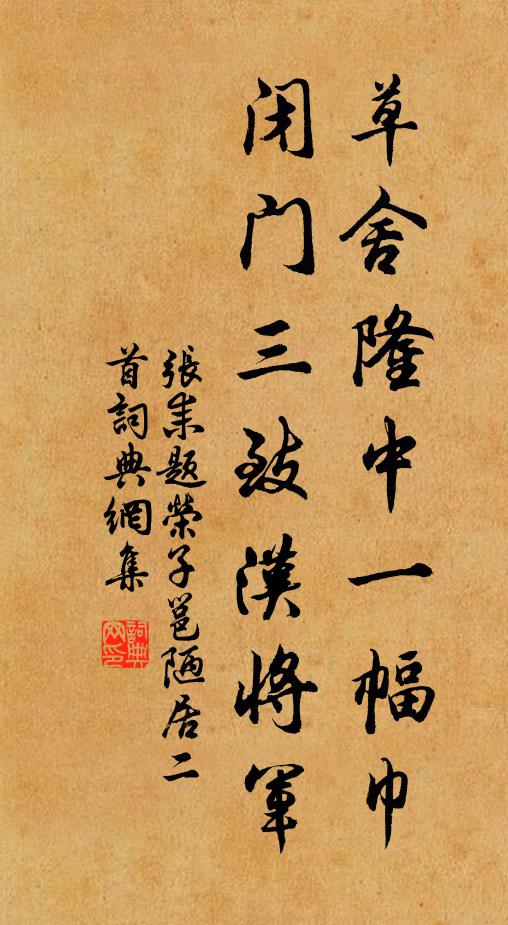 草舍隆中一幅巾
闭门三致漢將軍
張耒题榮子邕陋居二
首詞典網集
詞典网印